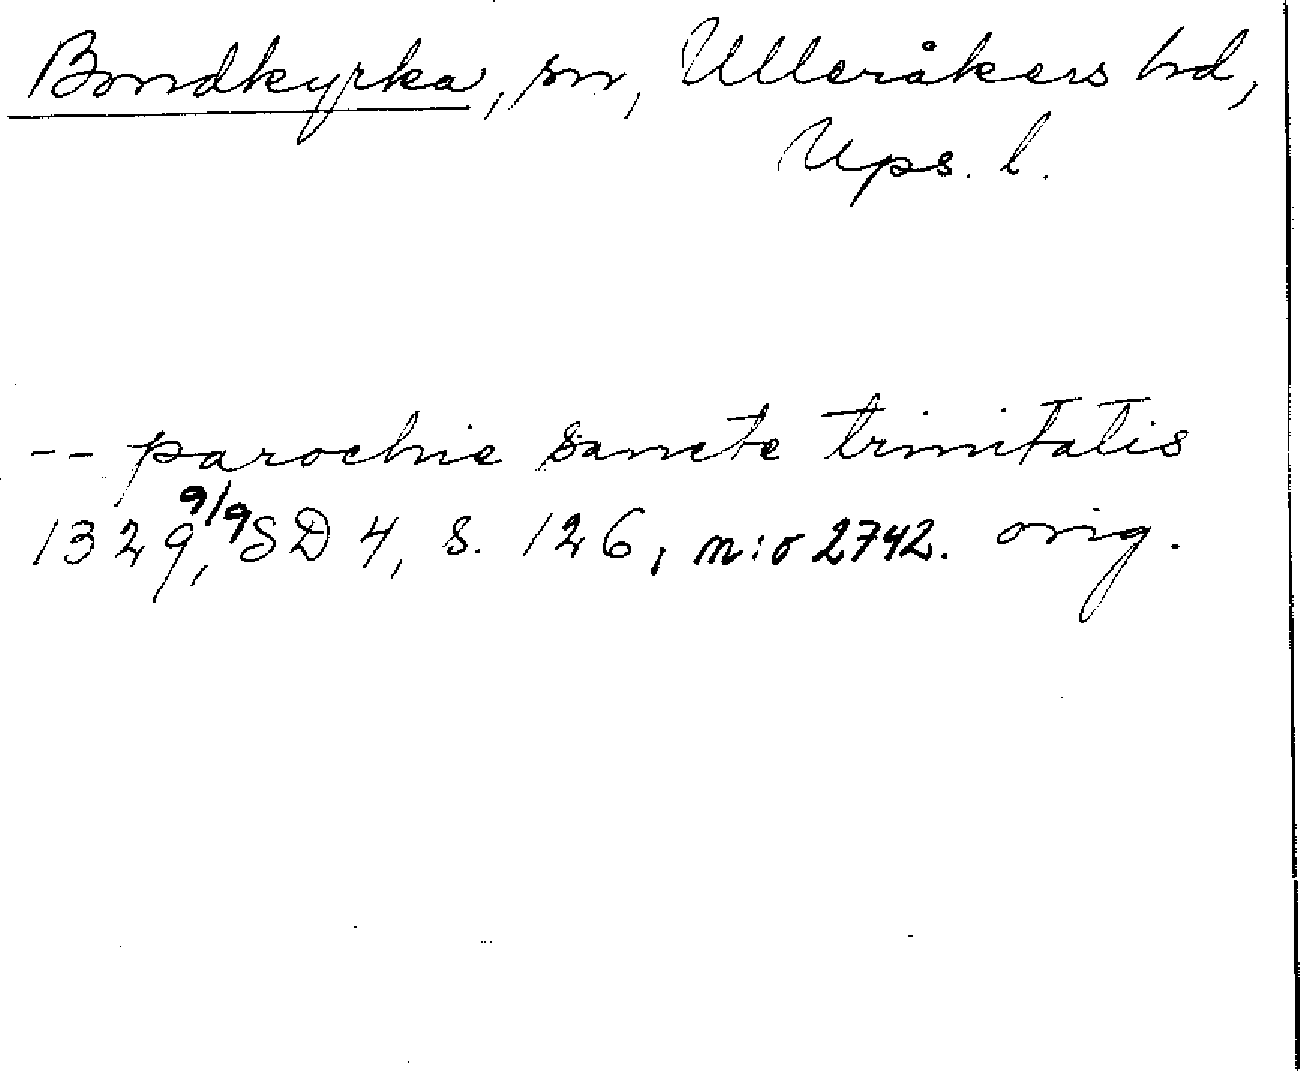 Bondkyrka, sn, Ulleråkers hd,
Ups. l.
-- parochie sancte trinitatis
1329 9/9, SD 4, s. 126, n:o 2742. orig.